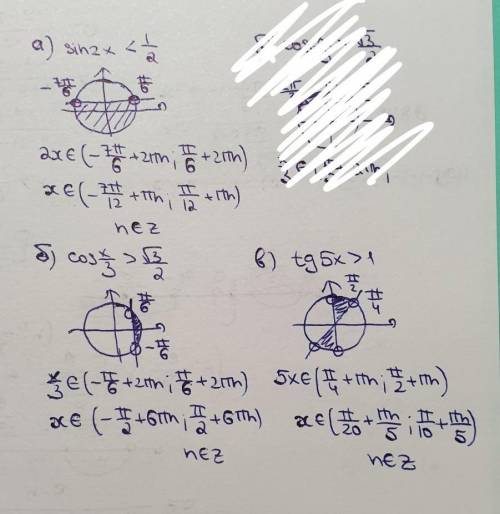 а) sin2x < 1/2
-7π/6 π/6
2x∈(-7π/6+2πn; π/6+2πn)
x∈(-7π/12+πn; π/12+πn)
n∈z
б) cos x/3 > √3/2
π/6
-π/6
x/3∈(-π/6+2πn; π/6+2πn)
x∈(-π/2+6πn; π/2+6πn)
n∈z
в) tg5x>1
π/2 π/4
5x∈(π/4+πn; π/2+πn)
x∈(π/20+πn/5; π/10+πn/5)
n∈z